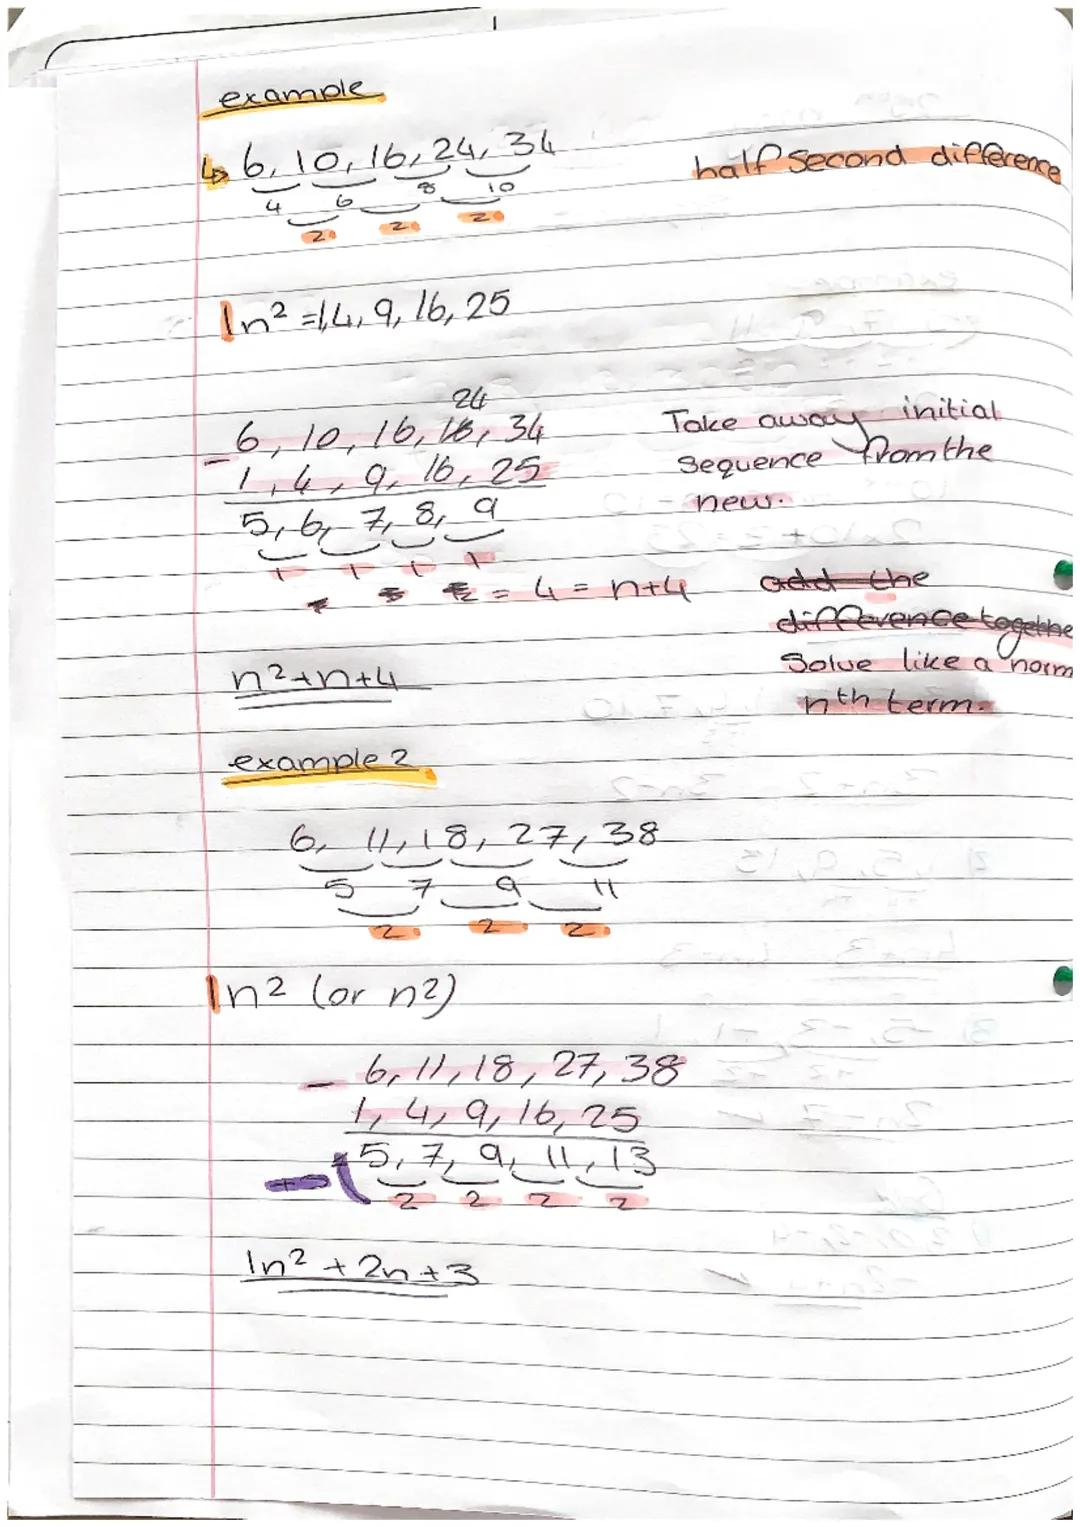 example
↳ 6, 10, 16, 24, 34
half second difference
4 6 8 10
2 2 2
1n² = 1,4, 9, 16, 25
24
6, 10, 16, 16, 34
Take away initial
- 1, 4, 9, 16, 25
sequence from the
5, 6, 7, 8, 9
new.
1 1 1 1
= 4 = n+4
add the
difference togethe
n²+n+4
Solve like a norm
nth term.
example 2
6, 11, 18, 27, 38
5 7 9 11
2 2 2
1n² (or n²)
- 6, 11, 18, 27, 38
1, 4, 9, 16, 25
5, 7, 9, 11, 13
2 2 2 2
1n² + 2n + 3